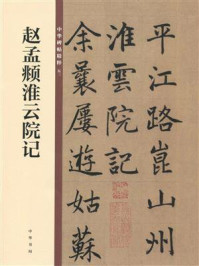 中华碑帖精粹
赵孟頫淮云院记
中华书局
平江路崑山州
淮雲院記
余曩屢遊姑蘇